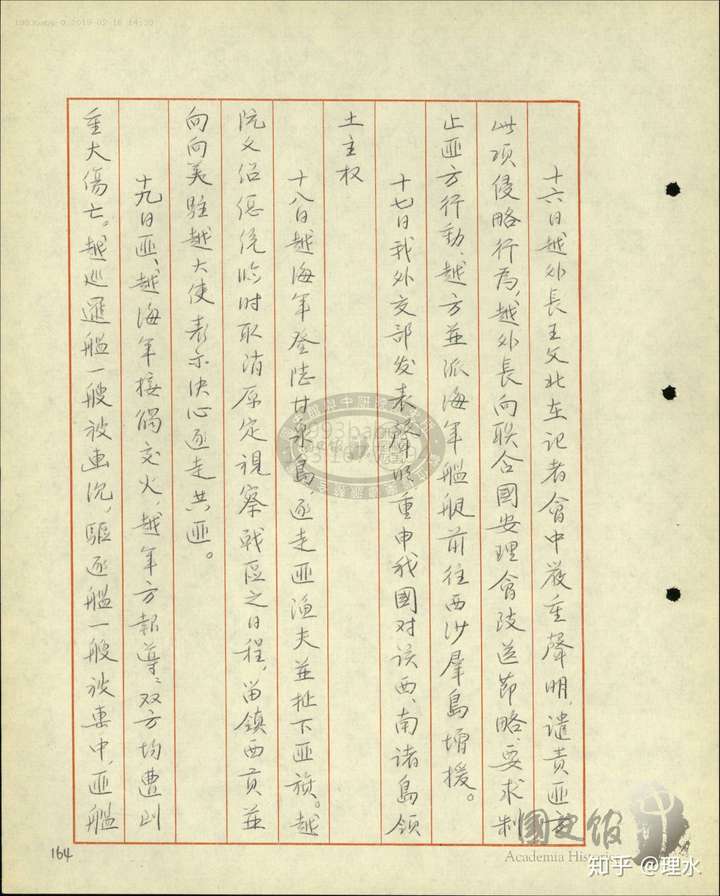 十六日越外長王文北在記者會中嚴重聲明,譴責匪方
此項侵略行為,越外長向联合國安理會致送節略,要求制
止匪方行動,越方並派海軍艦艇前往西沙羣島增援。
十七日我外交部发表聲明重申我國对该西、南诸島領
土主权
十八日越海軍登陸甘泉島,逐走匪渔夫並扯下匪旗。越
阮文绍总统临时取消原定視察戰區之日程,留鎮西貢並
向美駐越大使表示决心逐走共匪。
十九日匪、越海軍接觸交火,越軍方報導,双方均遭到
重大傷亡。越巡邏艦一艘被击沉,驅逐艦一艘被击中,匪艦
164
國史館
Academia Historica
知乎 @理水